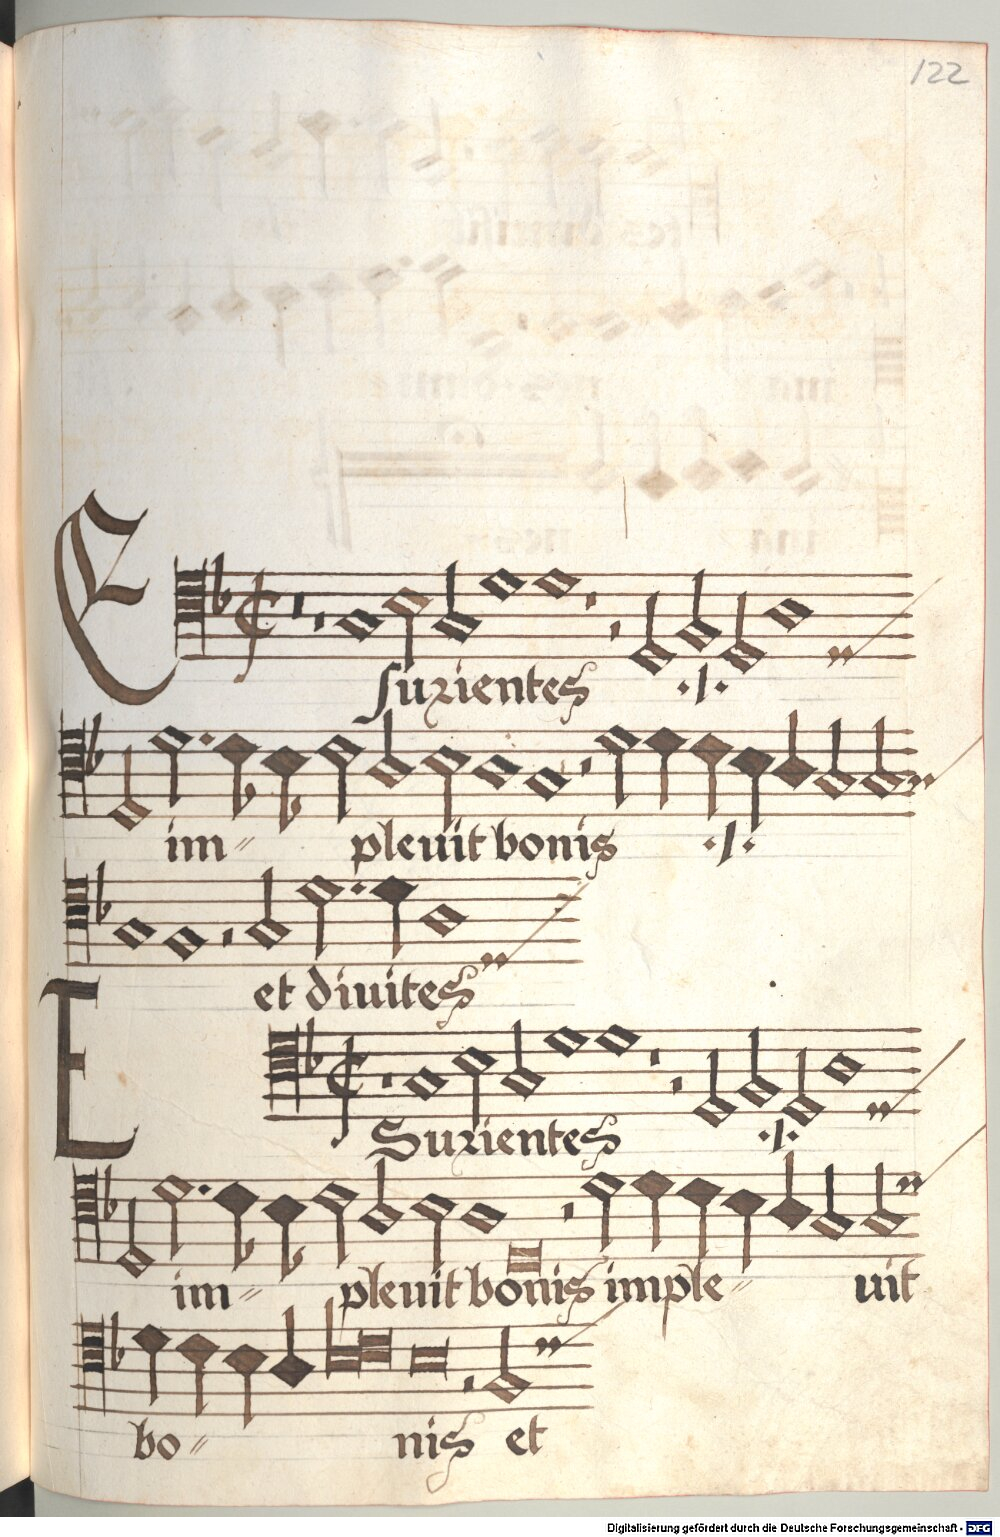 122
Esurientes ·I·
im= pleuit bonis ·I·
et diuites
ESurientes ·I·
im= pleuit bonis imple= uit
bo= nis et
Digitalisierung gefördert durch die Deutsche Forschungsgemeinschaft - DFG